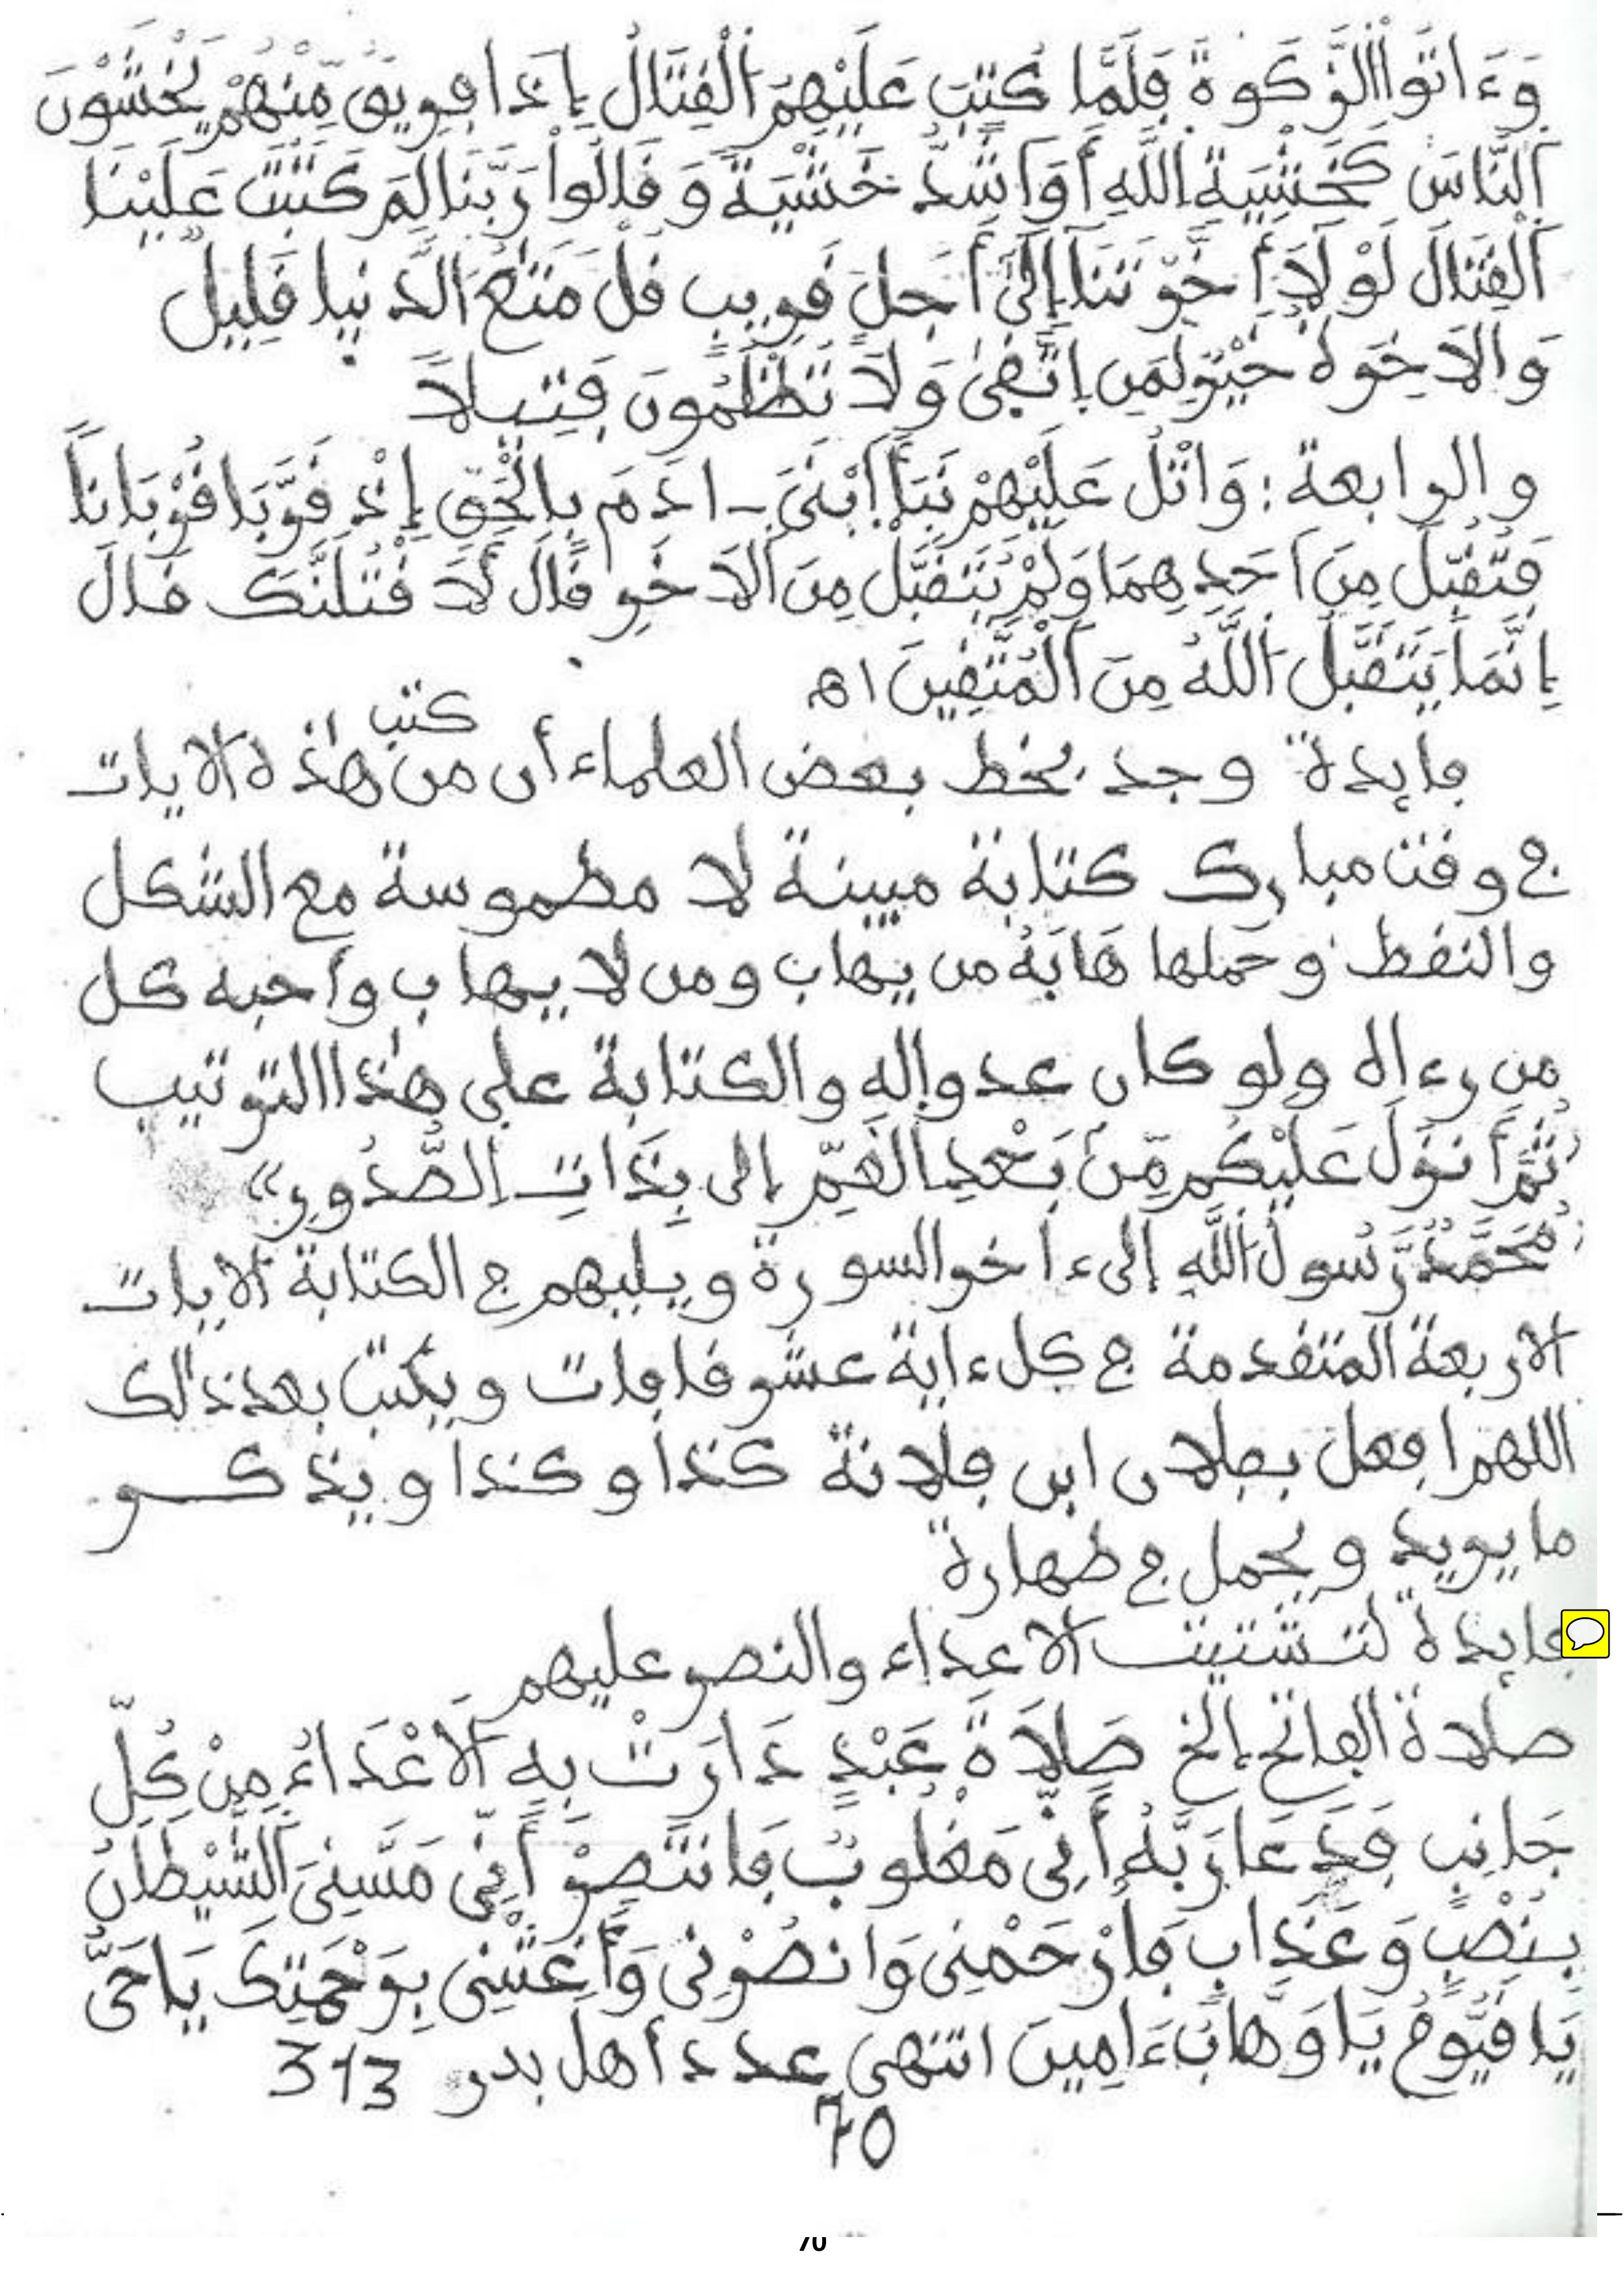 وَءَاتُوا اْلزَّكَوةَ فَلَمَّا كُتِبَ عَلَيْهِمُ اَلْقِتَالُ إِذَا فَرِيقٌ مِّنْهُمْ يَخْشَوْنَ
اَلنَّاسَ كَخَشْيَةِ اِللَّهِ أَوَ اَشَدَّ خَشْيَةً وَقَالُواْ رَبَّنَا لِمَ كَتَبْتَ عَلَيْنَا
اَلْقِتَالَ لَوْلَا أَخَّرْتَنَا إِلَىٰ أَجَلٍ قَرِيبٍ قُلْ مَتَٰعُ اَلدُّنْيَا قَلِيلٌ
وَالَاخِرَةُ خَيْرٌ لِمَنِ اِتَّقَىٰ وَلَا تُظْلَمُونَ فَتِيلًا
والرابعة : وَاتْلُ عَلَيْهِمْ نَبَأَ اَبْنَىَ ـ ادَمَ بِالْحَقِّ إِذْ قَرَّبَا قُرْبَانًا
فَتُقُبِّلَ مِنَ اَحَدِهِمَا وَلَمْ يُتَقَبَّلْ مِنَ اَلَاخَرِ قَالَ لَأَقْتُلَنَّكَ قَالَ
إِنَّمَا يَتَقَبَّلُ اَللَّهُ مِنَ اَلْمُتَّقِينَ اه
كتب
فايدة وجد بخط بعض العلماء أن من هٰذه الايات
في وقت مبارك كتابة مبينة لا مطموسة مع الشكل
والنقط وحملها هَابَهُ من يهاب ومن لا يهاب وأحبه كل
من رءاه ولو كان عدوا له والكتابة على هٰذا الترتيب
ثُمَّ أَنزَلَ عَلَيْكُم مِّنْ بَعْدِ اِلْغَمِّ إلى بِذَاتِ اِلصُّدُورِ»
مُحَمَّدٌ رَّسُولُ اَللَّهِ إلىء اخر السورة ويليهم في الكتابة الايات
الاربعة المتقدمة في كل ءاية عشر قافات ويكتب بعد ذٰلك
اللهم افعل بفلان ابن فلانة كذا وكذا ويذكر
ما يريد ويحمل في طهارة
فايدة لتشتيت الاعداء والنصر عليهم
صلاة الفاتح إلخ صَلَاةَ عَبْدٍ دَارَتْ بِهِ اَلَاعْدَاءُ مِنْ كُلِّ
جَانِبٍ فَدَعَا رَبَّهُ أَنِّي مَغْلُوبٌ فَانْتَصِرْ أَنِّي مَسَّنِيَ اَلشَّيْطَانُ
بِنُصْبٍ وَعَذَابٍ فَارْحَمْنِي وَانصُرْنِي وَأَغِثْنِي بِرَحْمَتِكَ يَا حَيُّ
يَا قَيُّومُ يَا وَهَّابُ ءَامِينَ انتهى عدد أهل بدر 313
70
70